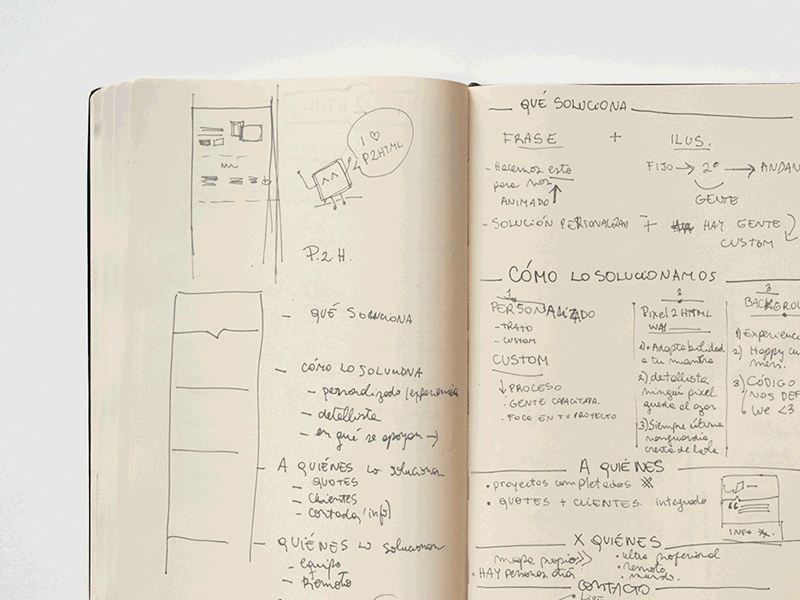 I ♡
P2HTML
P.2 H.
— QUÉ SOLUCIONA
— CÓMO LO SOLUCIONA
— personalizado/experiencia
— detallista
— en qué se apoyan →
— A QUIÉNES LO solucionan
— QUOTES
— clientes
— contados/info)
— QUIÉNES LO solucionan
— equipo
— Remoto
— QUÉ SOLUCIONA
FRASE + ILUS.
- Hacemos esto
para nos
ANIMADO
FIJO → 2º → ANDAN
GENTE
- SOLUCIÓN PERSONALIZAD + HAY GENTE
CUSTOM
CÓMO LO SOLUCIONAMOS
1
PERSONALIZADO
- TRATO
- CUSTOM
CUSTOM
↓ PROCESO
. GENTE CAPACITADA.
. FOCO EN TU PROYECTO
Pixel 2 HTML
WAY
1). Adaptabilidad
a tu manera
2) detallista
ningún pixel
queda al azar
3) Siempre última
vanguardia,
cresta de la ola
3
BACKGROU
1) Experienc
2) Happy cu
mers.
3) CÓDIGO
NOS DEF
We <3
A QUIÉNES
• proyectos completados
• QUOTES + CLIENTES. integrado
INFO
X QUIÉNES
mapa propio >>
• HAY personas detrá
• ultra profesional
• remoto
• mundo.
CONTACTO
LIVE